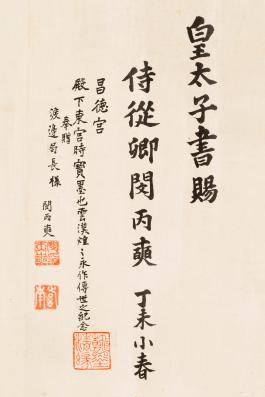 皇太子書賜
侍從卿閔丙奭 丁未小春
昌德宮
殿下東宮時寶墨也雲漢煌々永作傳世之紀念
奉贈
渡邊局長樣 閔丙奭